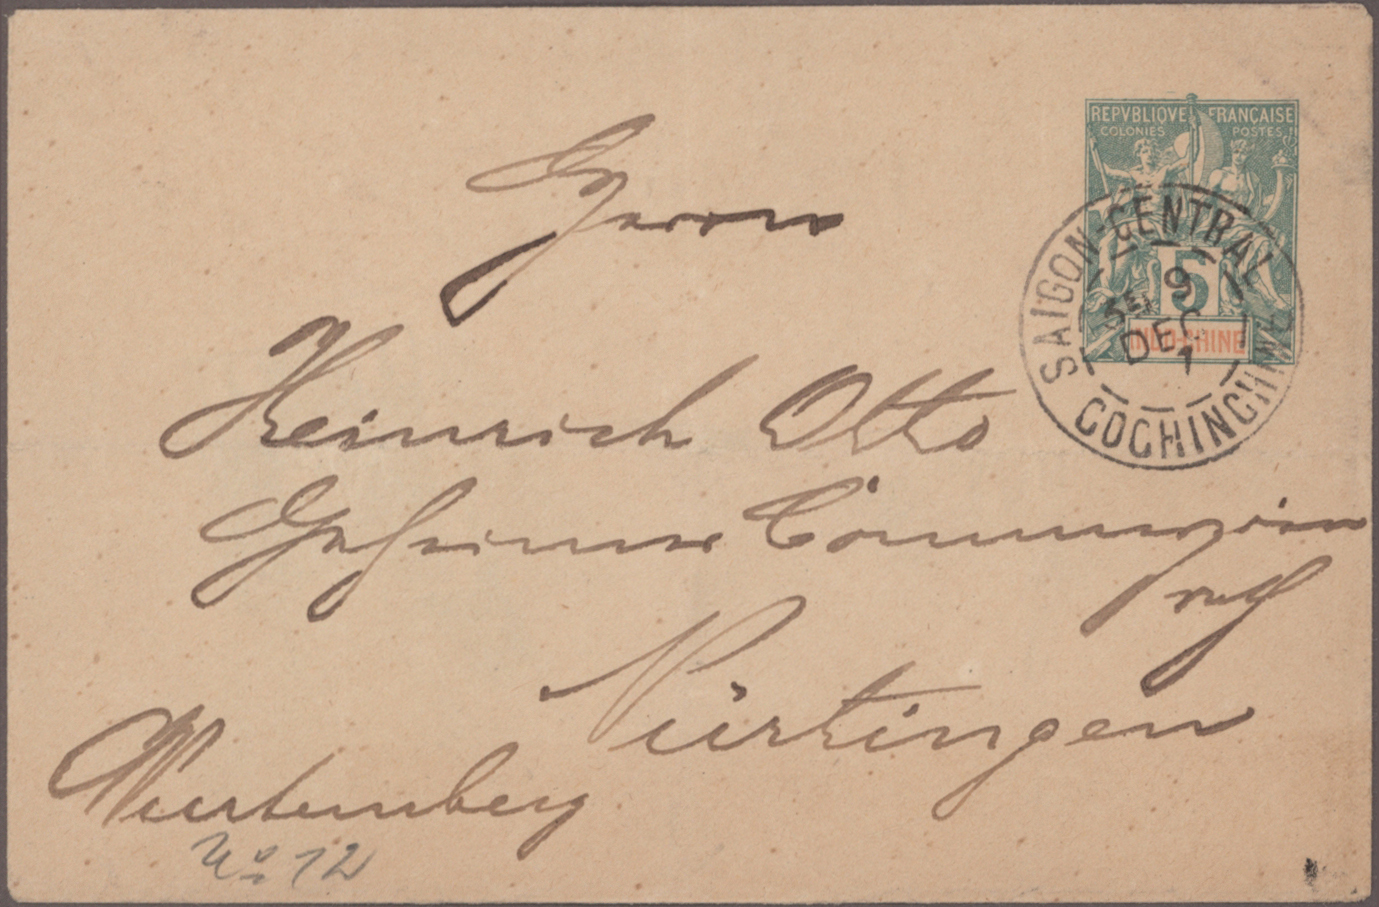 REPVBLIQVE FRANÇAISE
COLONIES POSTES
5
INDO-CHINE
SAIGON-CENTRAL
9
DEC
COCHINCHINE
Herrn
Heinrich Otto
Geheimer Commerzien
rath
Nürtingen
Wurtemberg
No 12